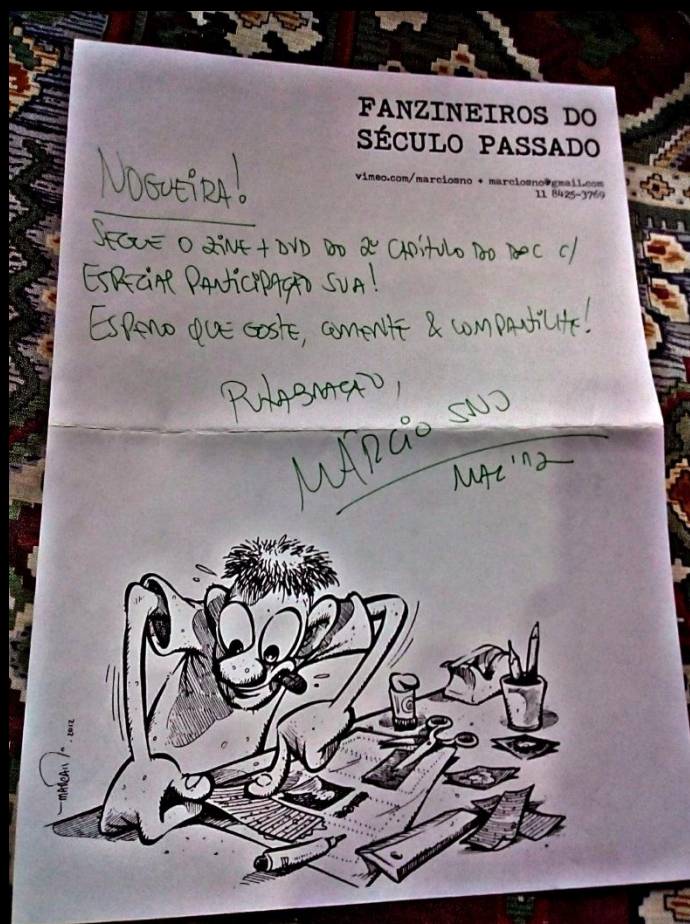 FANZINEIROS DO
SÉCULO PASSADO
vimeo.com/marciosno + marciosno@gmail.com
11 8425-3769
NOGUEIRA!
SEGUE O ZINE + DVD DO 2º CAPÍTULO DO DOC C/
ESPECIAL PARTICIPAÇÃO SUA!
ESPERO QUE GOSTE, COMENTE & COMPARTILHE!
MÁRCIO SNO
'12
2012